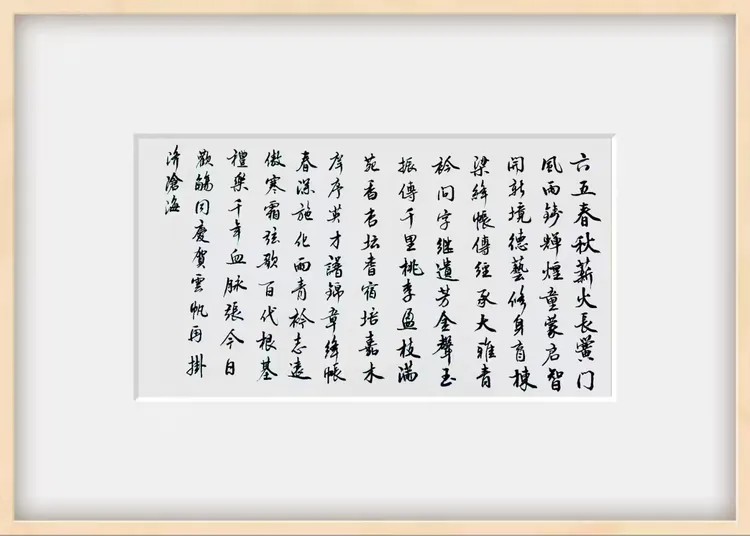 六五春秋薪火長黌门
風雨鑄輝煌童蒙启智
開新境德藝修身育棟
梁絳帳傳經承大雅青
衿问字継遺芳金聲玉
振傳千里桃李盈枝满
苑香杏坛耆宿培嘉木
庠序英才譜錦章絳帳
春深施化雨青衿志遠
傲寒霜弦歌百代根基
禮樂千年血脉張今日
歡觴同慶賀雲帆再掛
济滄海